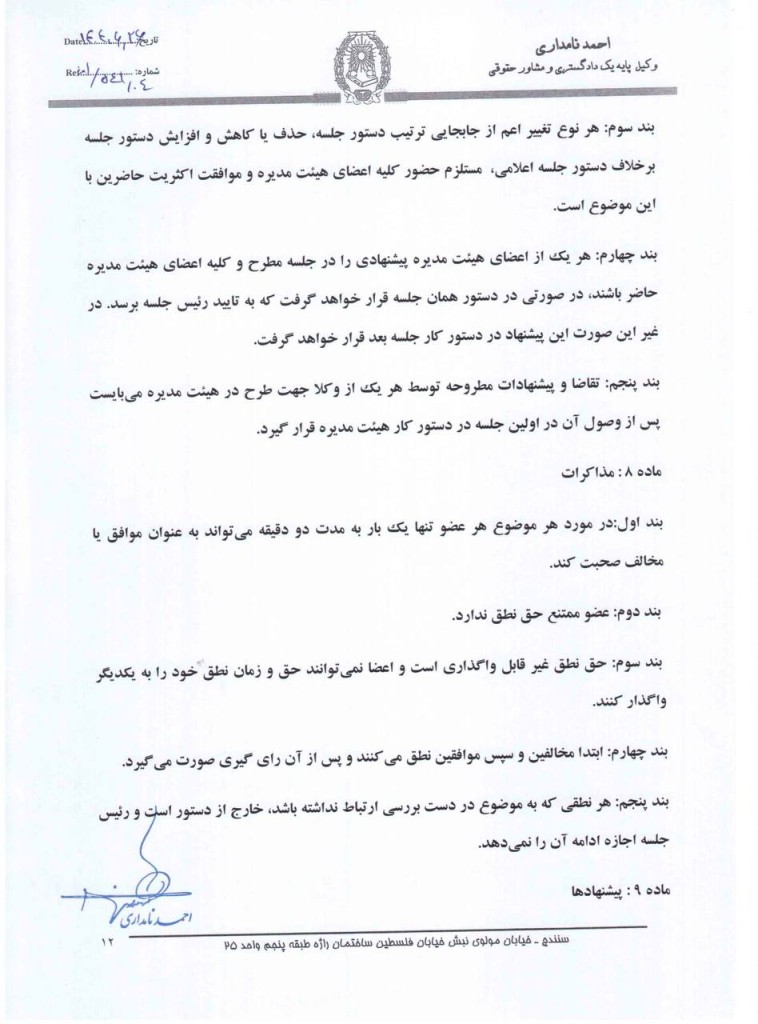 احمد نامداری
وکیل پایه یک دادگستری و مشاور حقوقی
تاریخ: Date:
شماره: Ref:
بند سوم: هر نوع تغییر اعم از جابجایی ترتیب دستور جلسه، حذف یا کاهش و افزایش دستور جلسه
برخلاف دستور جلسه اعلامی، مستلزم حضور کلیه اعضای هیئت مدیره و موافقت اکثریت حاضرین با
این موضوع است.
بند چهارم: هر یک از اعضای هیئت مدیره پیشنهادی را در جلسه مطرح و کلیه اعضای هیئت مدیره
حاضر باشند، در صورتی در دستور همان جلسه قرار خواهد گرفت که به تایید رئیس جلسه برسد. در
غیر این صورت این پیشنهاد در دستور کار جلسه بعد قرار خواهد گرفت.
بند پنجم: تقاضا و پیشنهادات مطروحه توسط هر یک از وکلا جهت طرح در هیئت مدیره می‌بایست
پس از وصول آن در اولین جلسه در دستور کار هیئت مدیره قرار گیرد.
ماده ۸ : مذاکرات
بند اول:در مورد هر موضوع هر عضو تنها یک بار به مدت دو دقیقه می‌تواند به عنوان موافق یا
مخالف صحبت کند.
بند دوم: عضو ممتنع حق نطق ندارد.
بند سوم: حق نطق غیر قابل واگذاری است و اعضا نمی‌توانند حق و زمان نطق خود را به یکدیگر
واگذار کنند.
بند چهارم: ابتدا مخالفین و سپس موافقین نطق می‌کنند و پس از آن رای گیری صورت می‌گیرد.
بند پنجم: هر نطقی که به موضوع در دست بررسی ارتباط نداشته باشد، خارج از دستور است و رئیس
جلسه اجازه ادامه آن را نمی‌دهد.
ماده ۹ : پیشنهادها
احمد نامداری
سنندج ـ خیابان مولوی نبش خیابان فلسطین ساختمان راژه طبقه پنجم واحد ۲۵
۱۲